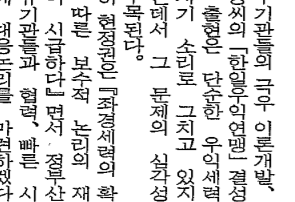 구기관들의 극우 이론개발,
씨의 「한일우익연맹」 결성
출현은 단순한 우익세력
기 소리로 그치고 있지
데서 그 문제의 심각성
목된다.
이 현정권은 『좌경세력의 확
따른 보수적 논리의 재
시급하다』면서 정부산
기관들과 협력, 빠른 시
대응논리를 마련하겠다